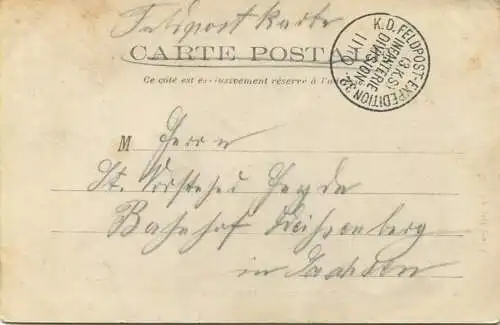 Feldpostkarte
CARTE POSTALE
Ce côté est exclusivement réservé à l'ad
K.D. FELDPOST-EXPEDITION 32.
INFANTERIE
(3.K.S)
DIVISION
11/10
M Herrn
St. Vorsteher
Bahnhof Weissenberg
in Sachsen